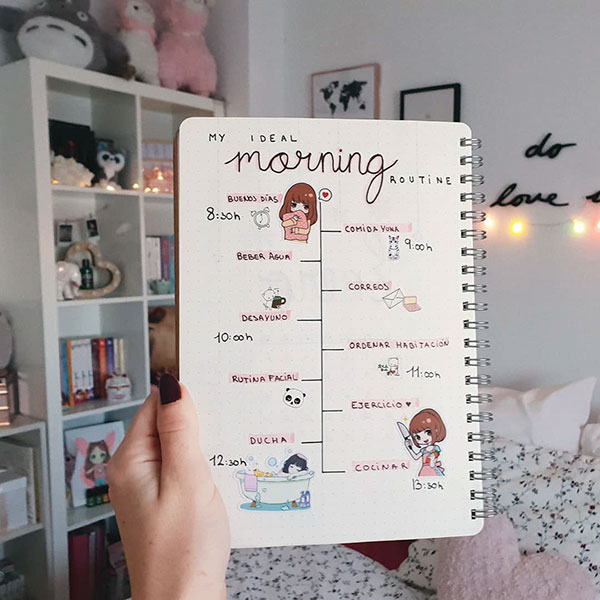 MY IDEAL
morning
ROUTINE
BUENOS DÍAS
8:30h
COMIDA YUNA
9:00h
BEBER AGUA
CORREOS
DESAYUNO
10:00h
ORDENAR HABITACIÓN
11:00h
RUTINA FACIAL
EJERCICIO ♥
DUCHA
12:30h
COCINAR
13:30h
do
love